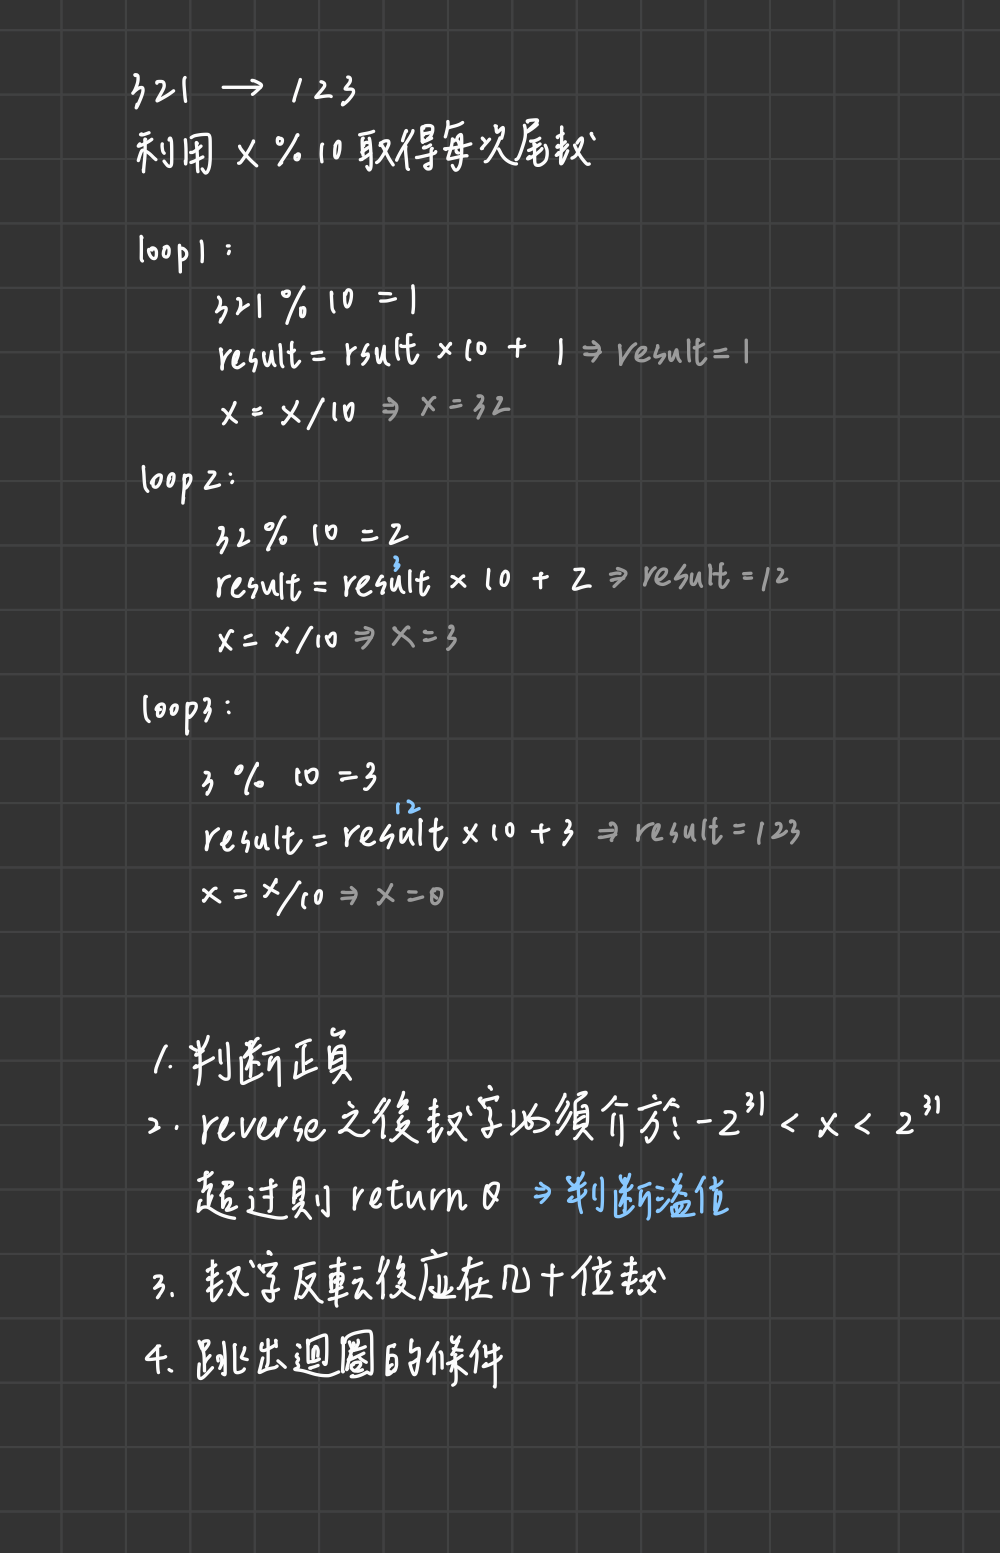 321 → 123
利用 x % 10 取得每次尾数
loop1 :
321 % 10 = 1
result = rsult × 10 + 1 ⇒ result = 1
x = x/10 ⇒ x = 32
loop 2 :
32 % 10 = 2
3
result = result × 10 + 2 ⇒ result = 12
x = x/10 ⇒ x = 3
loop3 :
3 % 10 = 3
12
result = result × 10 + 3 ⇒ result = 123
x = x/10 ⇒ x = 0
1. 判断正負
2. reverse 之後数字必須介於 -2³¹ < x < 2³¹
超过則 return 0 ⇒ 判断溢值
3. 数字反転後应在几十位数
4. 跳出迴圈的條件